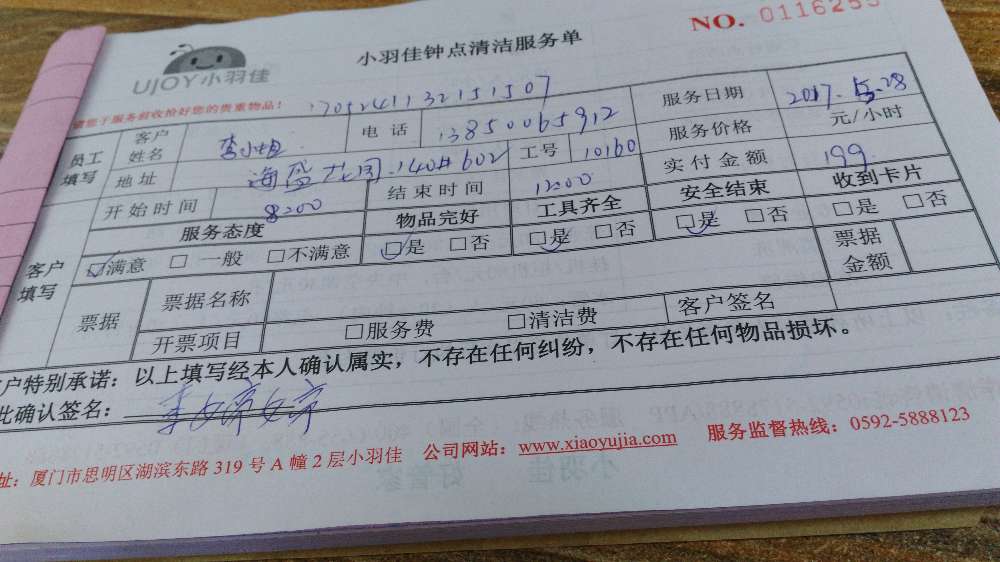 UJOY小羽佳
小羽佳钟点清洁服务单
NO. 0116255
请您于服务前收拾好您的贵重物品!
17052411132151507
员工填写
客户姓名 李小姐 电话 13850065912 服务日期 2017.5.28
地址 海盛花园.140#602 工号 10160 服务价格 元/小时
开始时间 8:00 结束时间 12:00 实付金额 199
客户填写
服务态度 物品完好 工具齐全 安全结束 收到卡片
☑满意 □一般 □不满意 ☑是 □否 ☑是 □否 ☑是 □否 □是 □否
票据 票据名称 票据金额
开票项目 □服务费 □清洁费 客户签名
户特别承诺：以上填写经本人确认属实，不存在任何纠纷，不存在任何物品损坏。
此确认签名：
址：厦门市思明区湖滨东路 319 号 A 幢 2 层小羽佳 公司网站：www.xiaoyujia.com 服务监督热线：0592-5888123